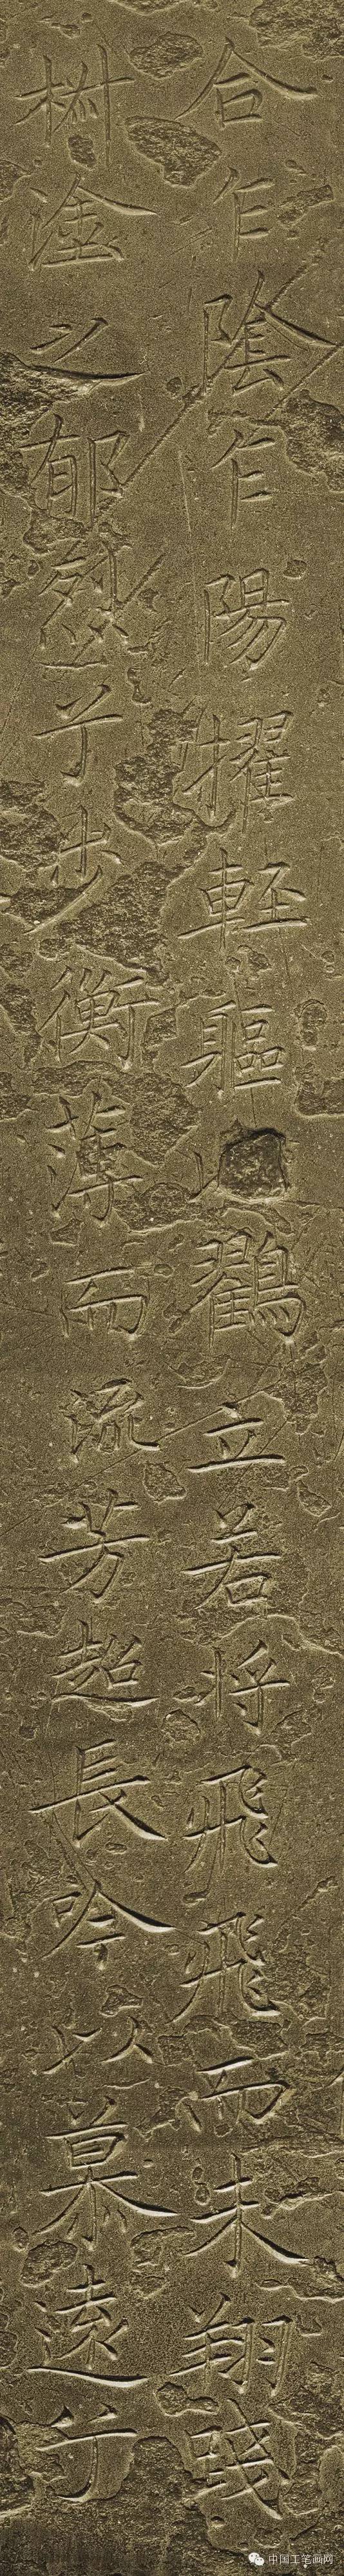 合乍陰乍陽擢輕軀鶴立若将飛飛而未翔踐
椒塗之郁烈兮步衡薄而流芳超長吟以慕遠兮
中国工笔画网